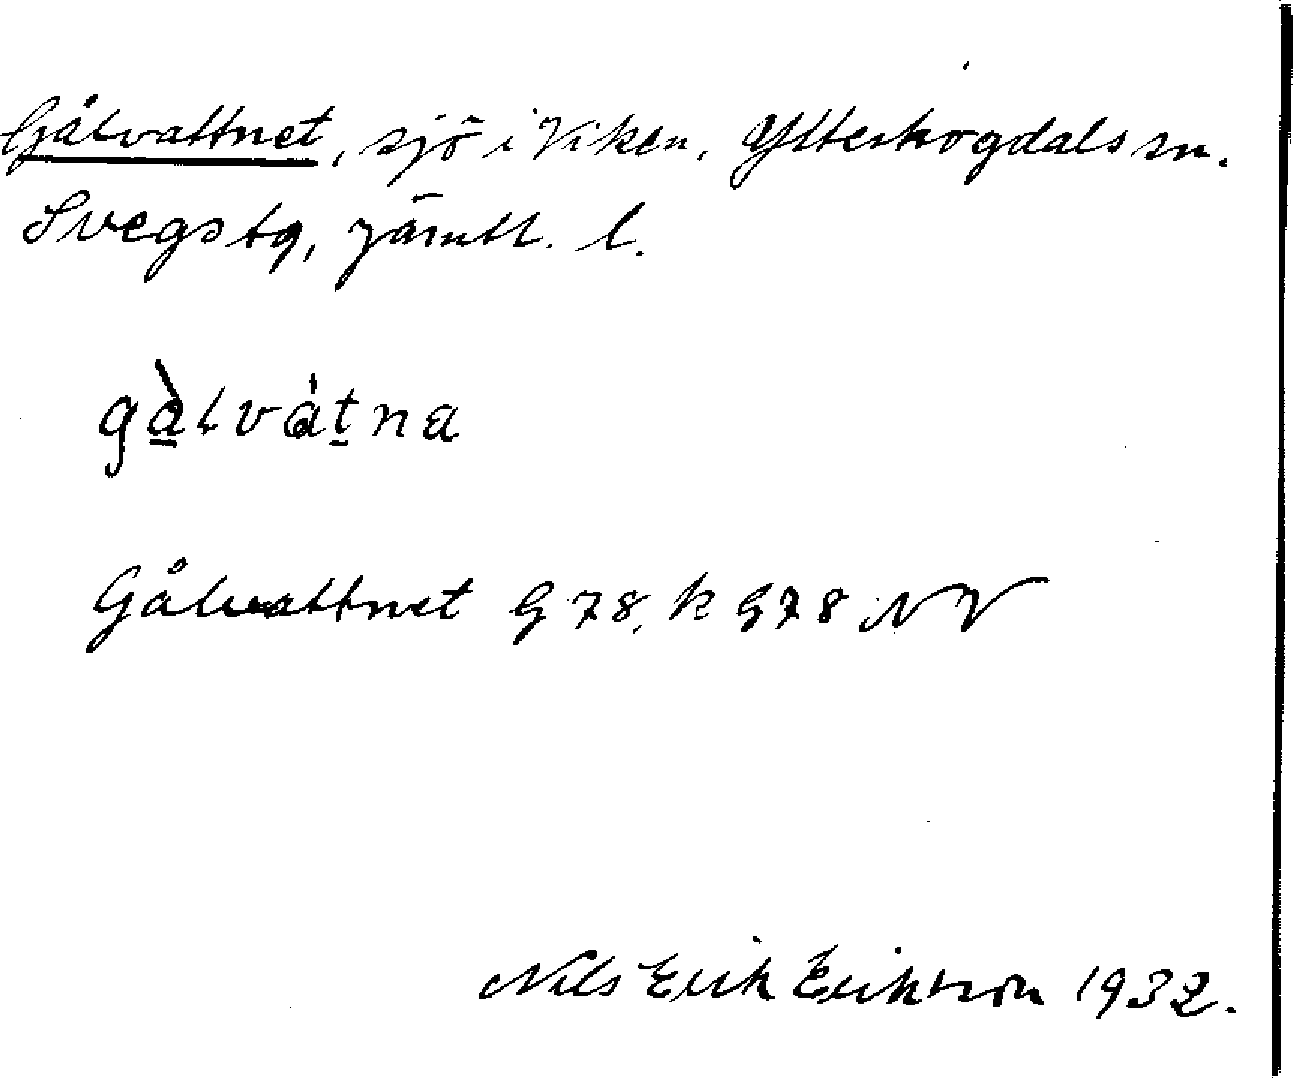 Gålvattnet, sjö i Viken, Ytterhogdals sn.
Svegs tg, Jämtl. l.
gàlvàtna
Gålvattnet G 78, k G 78 NV
Nils Erik Eriksson 1932.